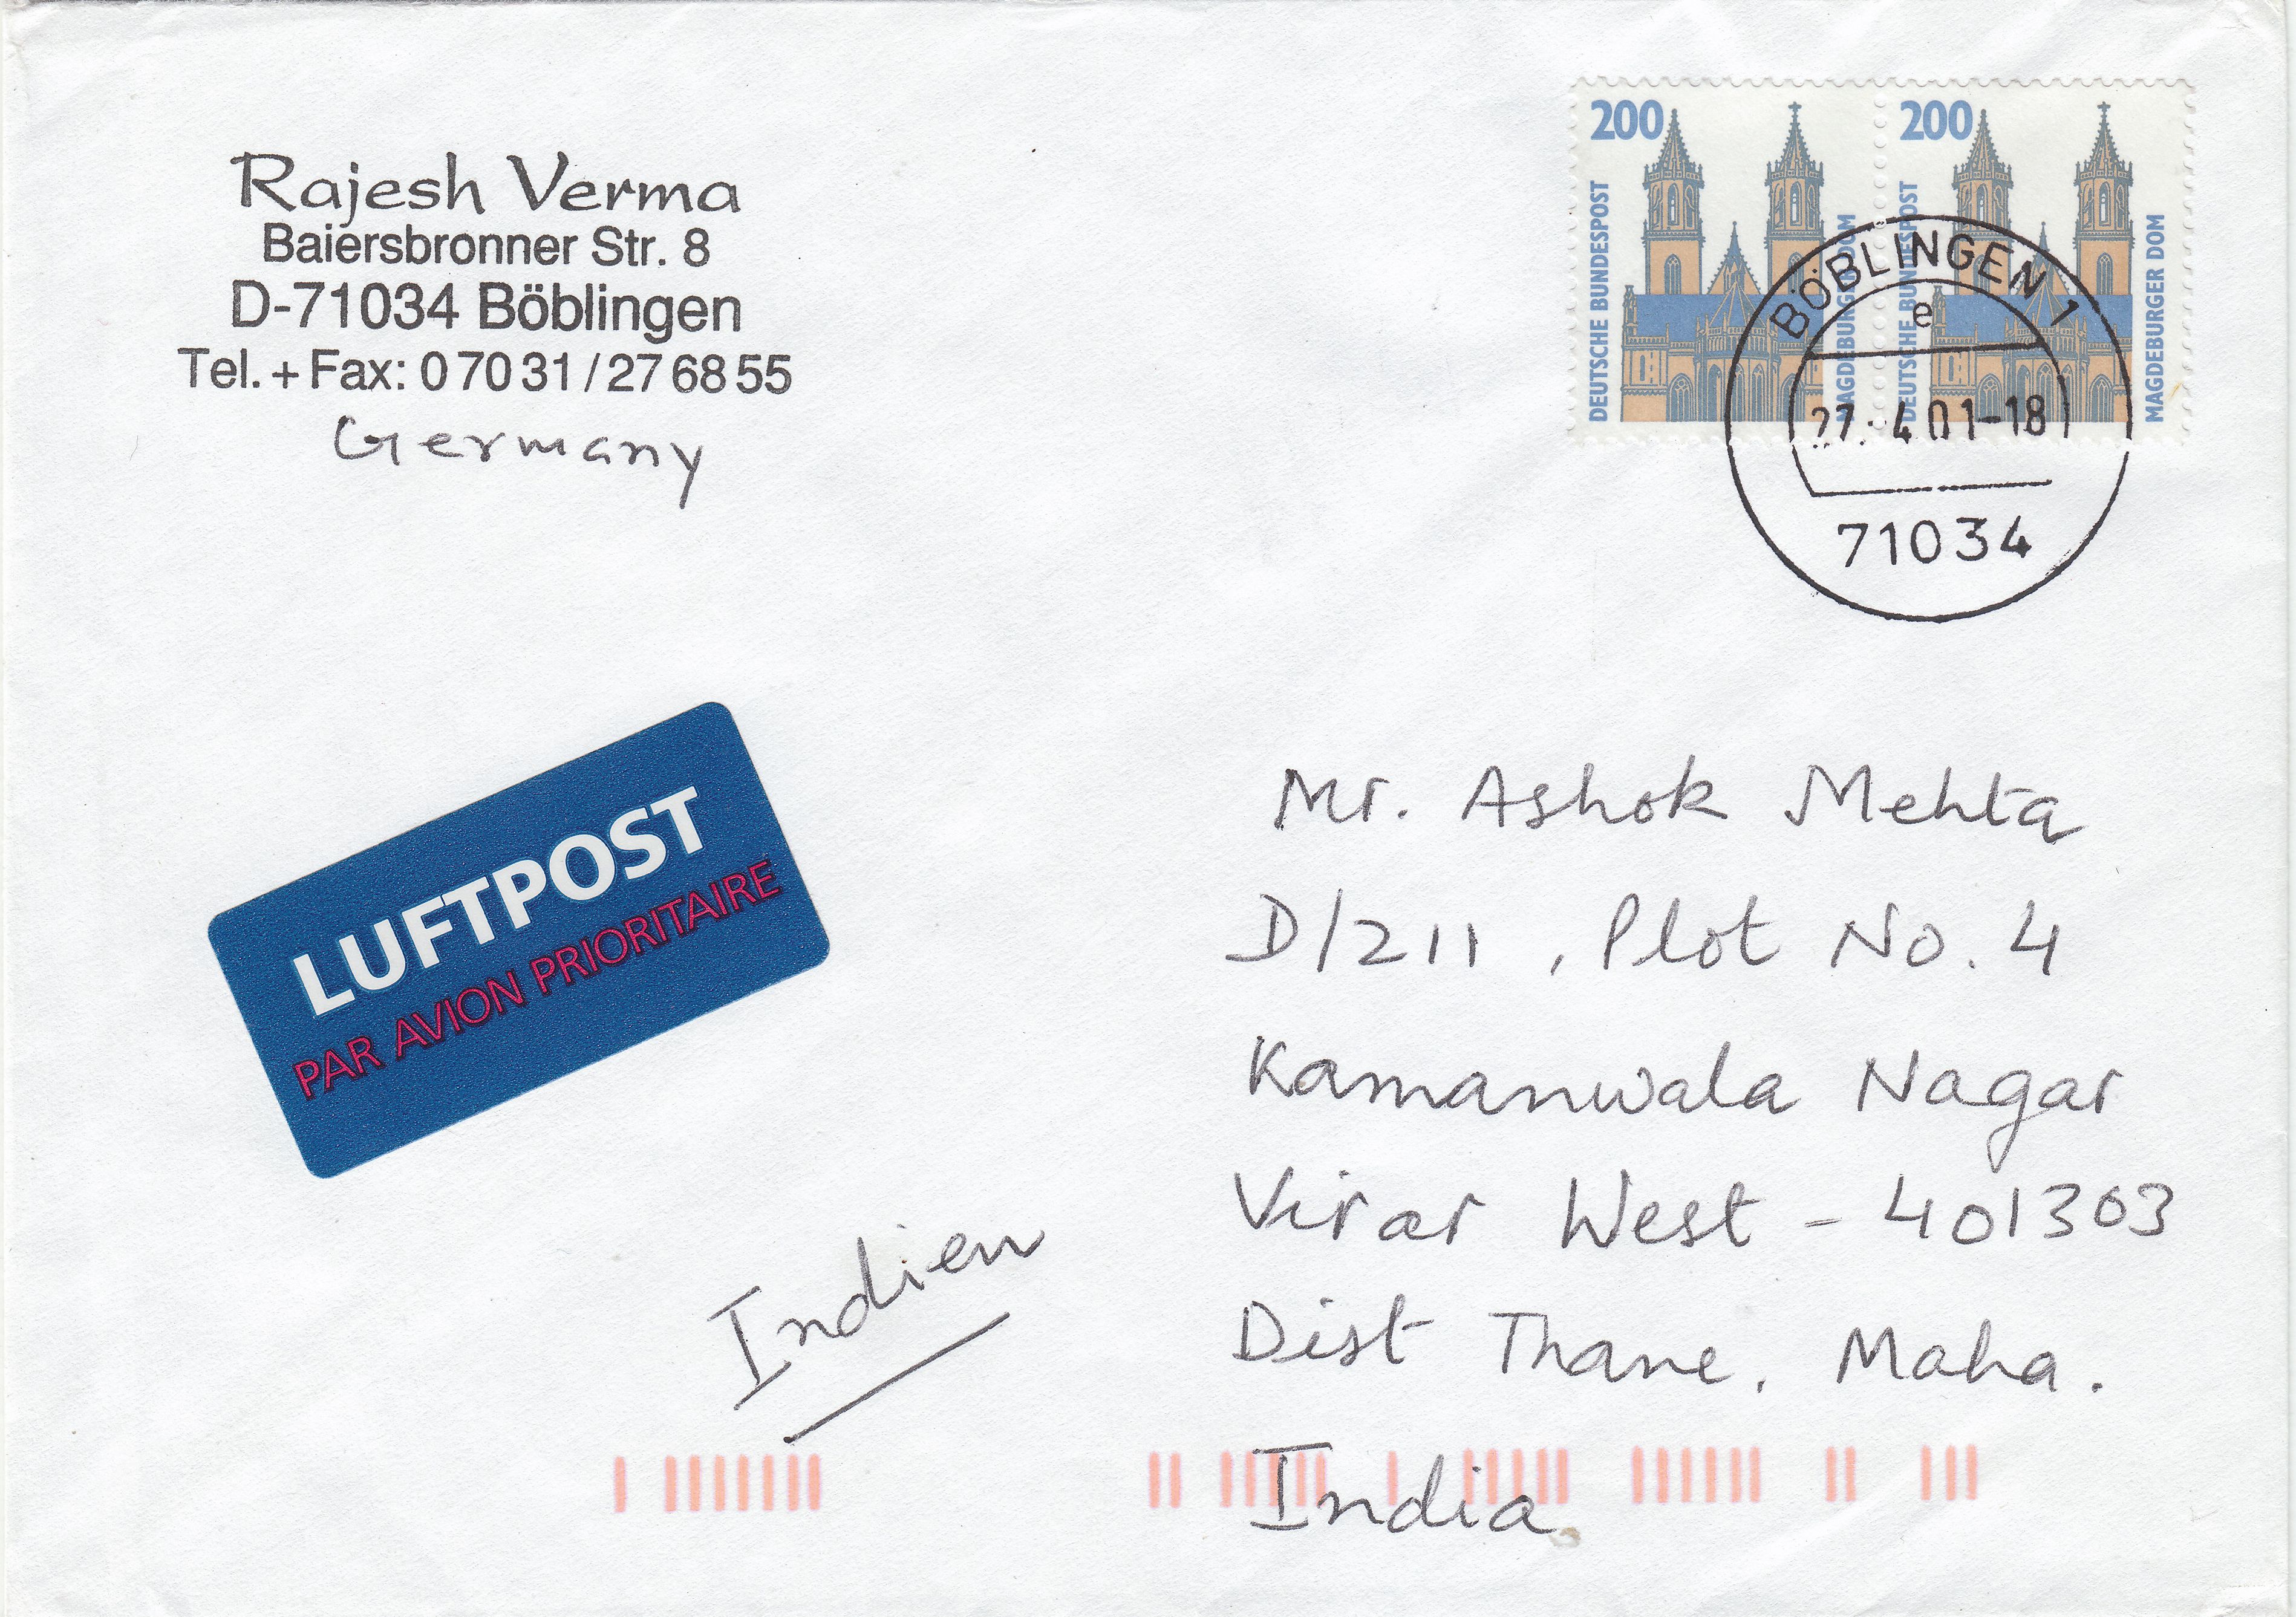 Rajesh Verma
Baiersbronner Str. 8
D-71034 Böblingen
Tel. + Fax: 0 70 31 / 27 68 55
Germany
200
DEUTSCHE BUNDESPOST
MAGDEBURGER DOM
200
DEUTSCHE BUNDESPOST
MAGDEBURGER DOM
BÖBLINGEN 1
e
27. 4.01-18
71034
LUFTPOST
PAR AVION PRIORITAIRE
Indien
Mr. Ashok Mehta
D/211, Plot No. 4
Kamanwala Nagar
Virar West - 401303
Dist Thane. Maha.
India